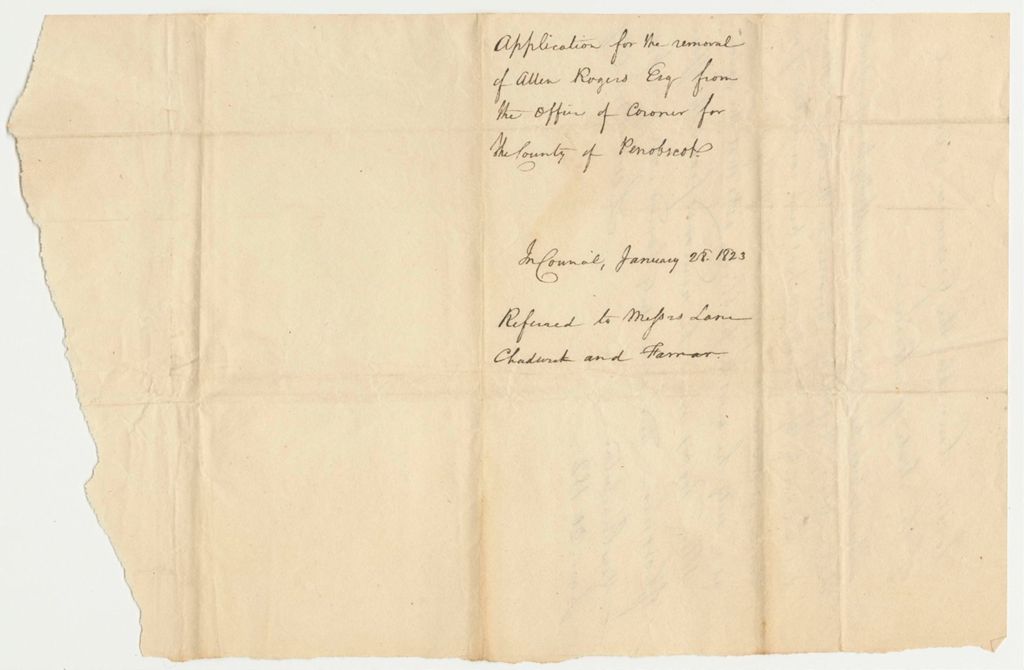 Application for the removal
of Allen Rogers Esq from
the office of Coroner for
the County of Penobscot.
In Council, January 28. 1823
Referred to Messrs Lane
Chadwick and Farrar.